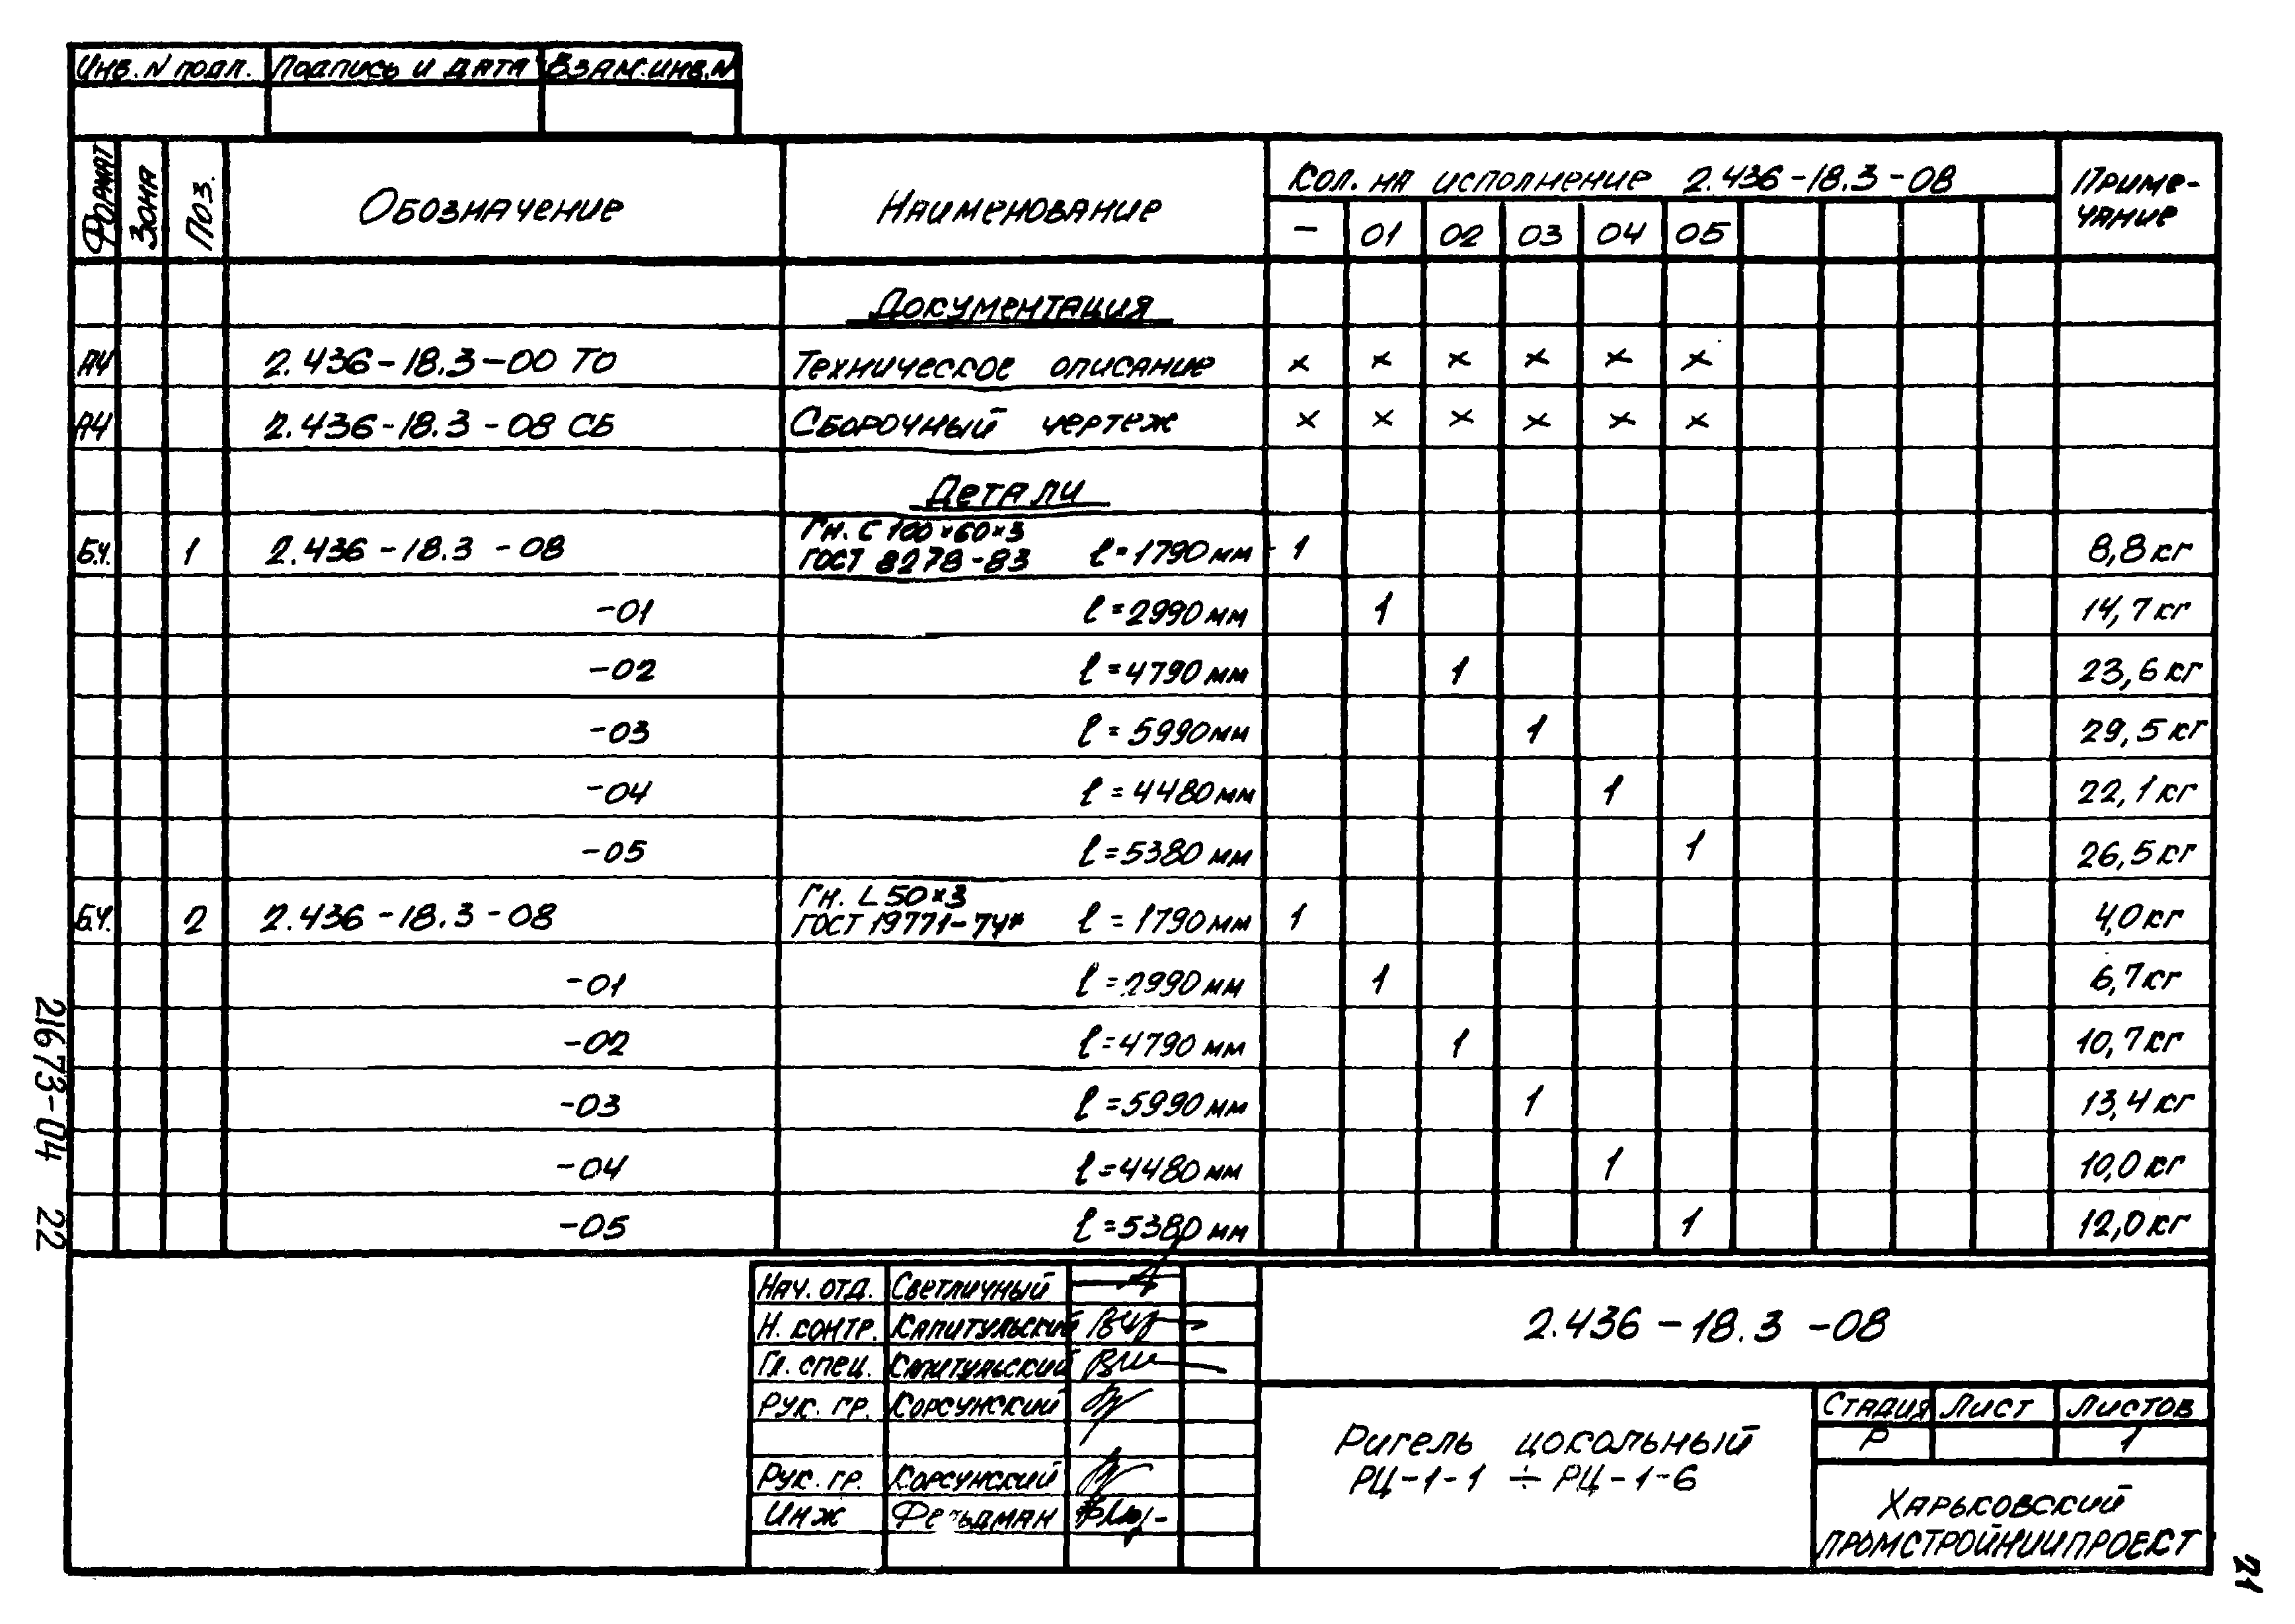 Инв. N подл. Подпись и дата Взам. инв. N
Формат Зона Поз. Обозначение Наименование Кол. на исполнение 2.436-18.3-08 Приме-
чание
- 01 02 03 04 05
Документация
А4 2.436-18.3-00 ТО Техническое описание × × × × × ×
А4 2.436-18.3-08 СБ Сборочный чертеж × × × × × ×
Детали
Гн. С 100×60×3
Б.ч. 1 2.436-18.3-08 ГОСТ 8278-83 ℓ=1790 мм 1 8,8 кг
-01 ℓ=2990 мм 1 14,7 кг
-02 ℓ=4790 мм 1 23,6 кг
-03 ℓ=5990 мм 1 29,5 кг
-04 ℓ=4480 мм 1 22,1 кг
-05 ℓ=5380 мм 1 26,5 кг
Гн. L 50×3
Б.ч. 2 2.436-18.3-08 ГОСТ 19771-74* ℓ=1790 мм 1 4,0 кг
-01 ℓ=2990 мм 1 6,7 кг
-02 ℓ=4790 мм 1 10,7 кг
-03 ℓ=5990 мм 1 13,4 кг
-04 ℓ=4480 мм 1 10,0 кг
-05 ℓ=5380 мм 1 12,0 кг
21673-04 22
Нач. отд. Светличный
Н. контр. Капитульский
Гл. спец. Капитульский
Рук. гр. Корсунский
Рук. гр. Корсунский
Инж Фельдман
2.436-18.3-08
Ригель цокольный
РЦ-1-1 ÷ РЦ-1-6
Стадия Лист Листов
Р 1
Харьковский
Промстройниипроект
21